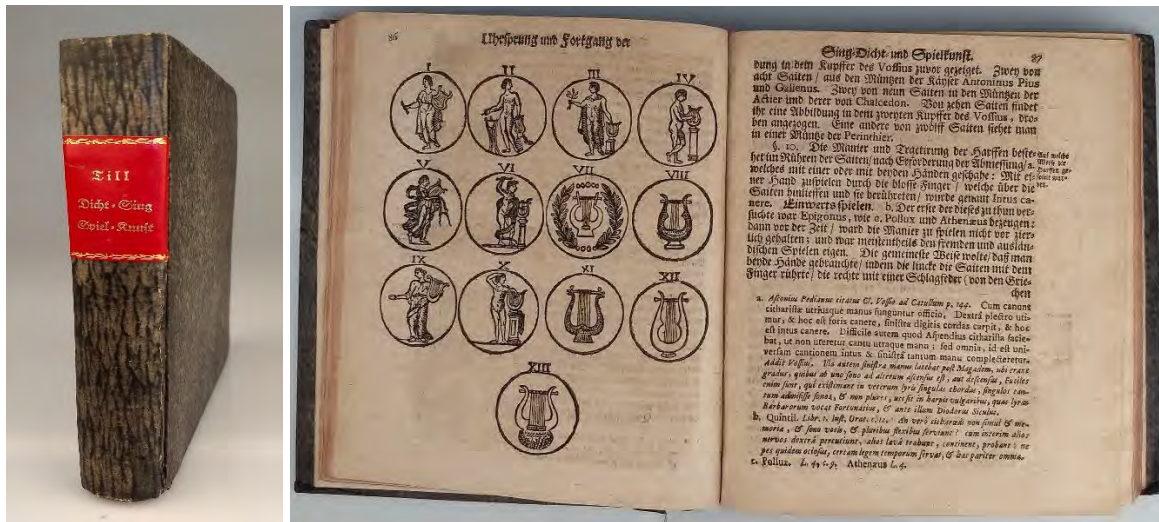 Till
Dicht-Sing
Spiel-Kunst
86
Uhrsprung und Fortgang der
I
II
III
IV
V
VI
VII
VIII
IX
X
XI
XII
XIII
Sing-Dicht- und Spielkunst.
87
dung in dem Kupffer des Vossius zuvor gezeiget. Zwey von
acht Saiten / aus den Müntzen der Käyser Antoninus Pius
und Gallienus. Zwey von neun Saiten in den Müntzen der
Actier und derer von Chalcedon. Von zehen Saiten findet
ihr eine Abbildung in dem zweyten Kupffer des Vossius, dro-
ben angezogen. Eine andere von zwölff Saiten siehet man
in einer Müntze der Perinthier.
§. 10. Die Manier und Tractirung der Harffen beste-
het im Rühren der Saiten / nach Erforderung der Abmessung / a.
welches mit einer oder mit beyden Händen geschahe: Mit ei-
ner Hand zuspielen durch die blosse Finger / welche über die
Saiten hinlieffen und sie berühreten / wurde genant Intus ca-
nere. Einwerts spielen. b. Der erste der dieses zu thun ver-
suchte war Epigonus, wie c. Pollux und Athenæus bezeugen:
dann vor der Zeit / ward die Manier zu spielen nicht vor zier-
lich gehalten; und war meistentheils den fremden und auslän-
dischen Spielen eigen. Die gemeineste Weise wolte / daß man
beyde Hände gebrauchte / indem die lincke die Saiten mit dem
Finger rührte / die rechte mit einer Schlagfeder (von den Grie-
chen
Auf welche
Weise die
Harffen ge-
a. Asconius Pedianus citatus Cl. Vossio ad Catullum p. 144. Cum canunt
citharistæ utriusque manus funguntur officio, Dextrâ plectro uti-
mur, & hoc est foris canere, sinistrâ digitis cordas carpit, & hoc
est intus canere. Difficile autem quod Aspendius citharista facie-
bat, ut non uteretur cantu utraque manu; sed omnia, id est uni-
versam cantionem intus & sinistrâ tantum manu complecteretur.
Addit Vossius. Illa autem sinistra manus latebat post Magadem, ubi erant
gradus, quibus ab uno sono ad alterum ascensus est, aut descensus, Faciles
enim sunt, qui existimant in veterum lyris singulas chordas, singulos tan-
tum admisisse sonos, & non plures, ut sit in harpis vulgaribus, quas lyras
Barbarorum vocat Fortunatius, & ante illum Diodorus Siculus.
b. Quintil. Libr. 1. Inst. Orat. c. 12. An verò citharœdi non simul & me-
moriæ, & sono vocis, & pluribus flexibus serviunt? cum interim alios
nervos dextrâ percutiunt, alios lævâ trahunt, continent, probant? ne
pes quidem otiosus, certam legem temporum servat, & hæc pariter omnia.
c. Pollux. L. 4. c. 9. Athenæus L. 4.